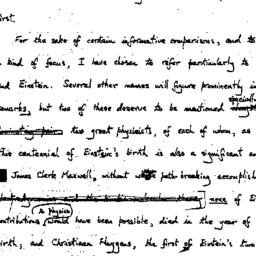 first.
For the sake of certain informative comparisons, and to
a kind of focus, I have chosen to refer particularly to
and Einstein. Several other names will figure prominently in
especially
remarks, but two of these deserve to be mentioned
two great physicists, of each of whom, as
this centennial of Einstein's birth is also a significant
James Clerk Maxwell, without whose path breaking accomplish
none of E
in physics
contributions would have been possible, died in the year of
birth; and Christiaan Huygens, the first of Einstein's two